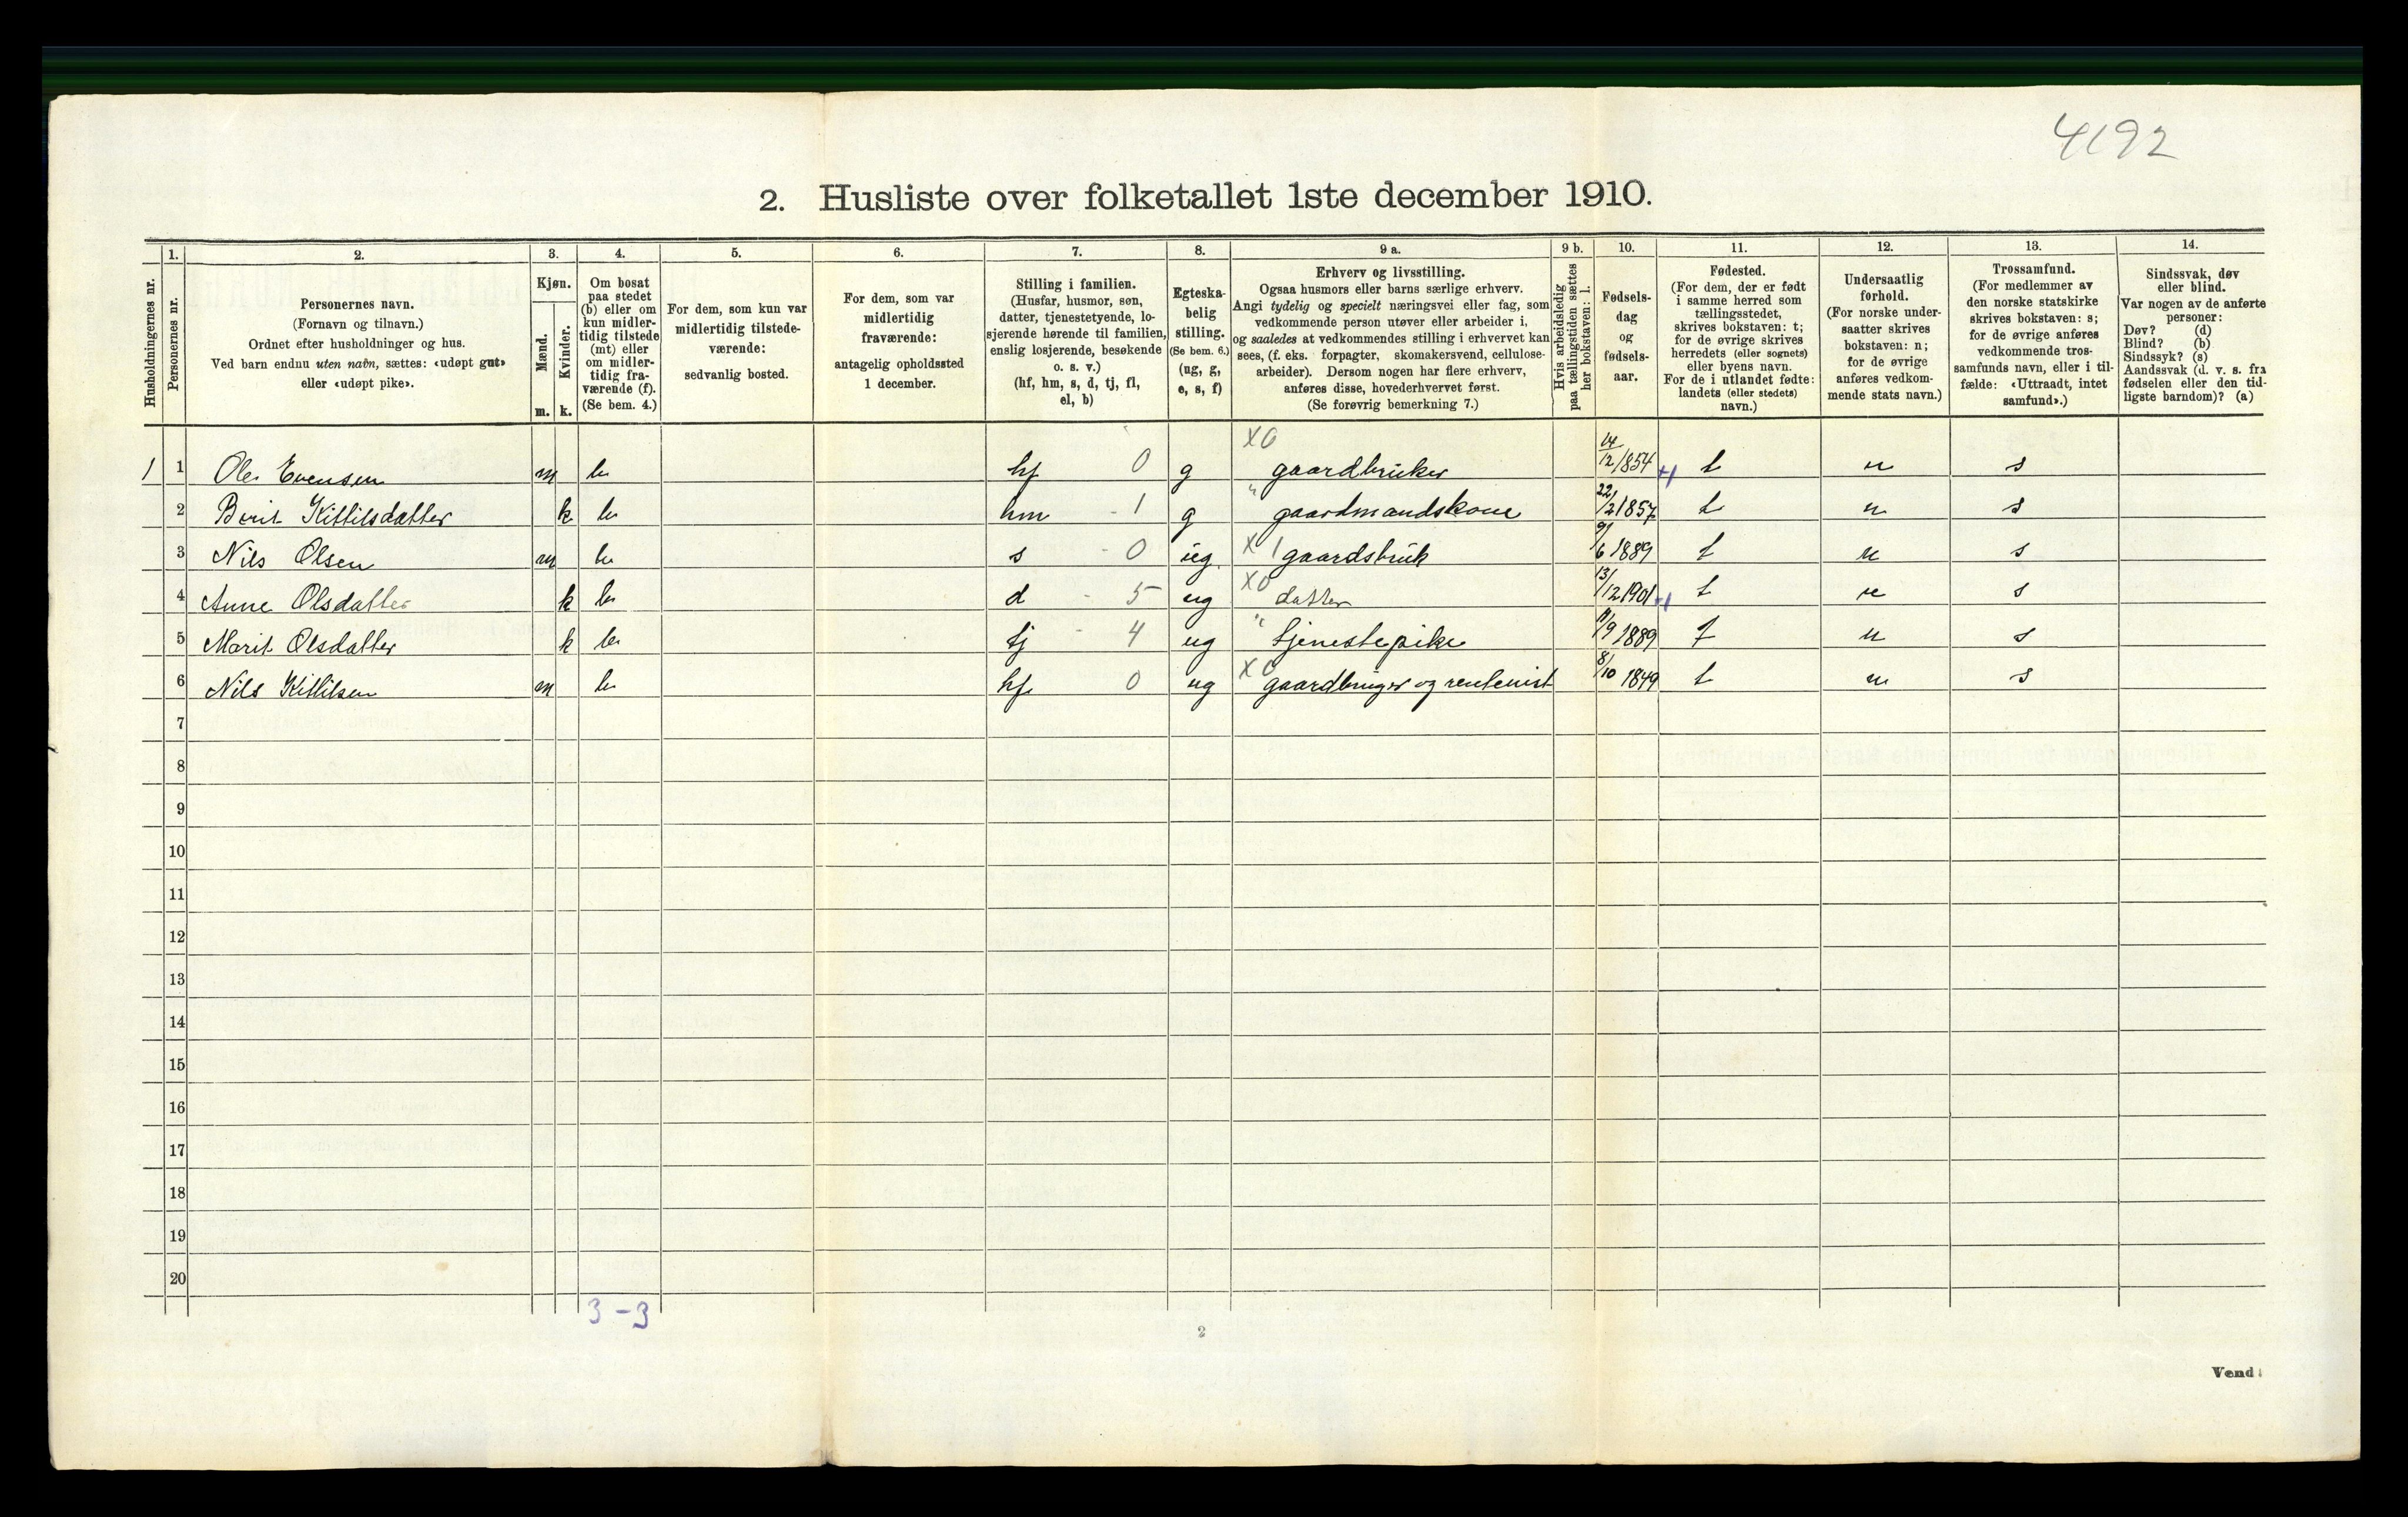 4192
2. Husliste over folketallet 1ste december 1910.
Husholdningernes nr.
1.
Personernes nr.
2.
Personernes navn.
(Fornavn og tilnavn.)
Ordnet efter husholdninger og hus.
Ved barn endnu uten navn, sættes: «udøpt gut»
eller «udøpt pike».
3.
Kjøn.
Mænd.
Kvinder.
m. k.
4.
Om bosat
paa stedet
(b) eller om
kun midler-
tidig tilstede
(mt) eller
om midler-
tidig fra-
værende (f).
(Se bem. 4.)
5.
For dem, som kun var
midlertidig tilstede-
værende:
sedvanlig bosted.
6.
For dem, som var
midlertidig
fraværende:
antagelig opholdssted
1 december.
7.
Stilling i familien.
(Husfar, husmor, søn,
datter, tjenestetyende, lo-
sjerende hørende til familien,
enslig losjerende, besøkende
o. s. v.)
(hf, hm, s, d, tj, fl,
el, b)
8.
Egteska-
belig
stilling.
(Se bem. 6.)
(ug, g,
e, s, f)
9 a.
Erhverv og livsstilling.
Ogsaa husmors eller barns særlige erhverv.
Angi tydelig og specielt næringsvei eller fag, som
vedkommende person utøver eller arbeider i,
og saaledes at vedkommendes stilling i erhvervet kan
sees, (f. eks. forpagter, skomakersvend, cellulose-
arbeider). Dersom nogen har flere erhverv,
anføres disse, hovederhvervet først.
(Se forøvrig bemerkning 7.)
9 b.
Hvis arbeidsledig
paa tællingstiden sættes
her bokstaven: l.
10.
Fødsels-
dag
og
fødsels-
aar.
11.
Fødested.
(For dem, der er født
i samme herred som
tællingsstedet,
skrives bokstaven: t;
for de øvrige skrives
herredets (eller sognets)
eller byens navn.
For de i utlandet fødte:
landets (eller stedets)
navn.)
12.
Undersaatlig
forhold.
(For norske under-
saatter skrives
bokstaven: n;
for de øvrige
anføres vedkom-
mende stats navn.)
13.
Trossamfund.
(For medlemmer av
den norske statskirke
skrives bokstaven: s;
for de øvrige anføres
vedkommende tros-
samfunds navn, eller i til-
fælde: «Uttraadt, intet
samfund».)
14.
Sindssvak, døv
eller blind.
Var nogen av de anførte
personer:
Døv? (d)
Blind? (b)
Sindssyk? (s)
Aandssvak (d. v. s. fra
fødselen eller den tid-
ligste barndom)? (a)
1 1 Ole Evensen m b hf 0 g X0 gaardbruker 14/12 1854 +1 t n s
2 Berit Kittilsdatter k b hm - 1 g " gaardmandskone 22/2 1857 t n s
3 Nils Olsen m b s - 0 ug X 1 gaardsbruk 9/6 1889 t n s
4 Anne Olsdatter k b d - 5 ug X0 datter 13/12 1901 +1 t n s
5 Marit Olsdatter k b tj - 4 ug " tjenestepike 11/9 1889 t n s
6 Nils Kittilsen m b hf 0 ug X0 gaardbruger og rentenist 8/10 1849 t n s
7
8
9
10
11
12
13
14
15
16
17
18
19
20
3 - 3
2
Vend!